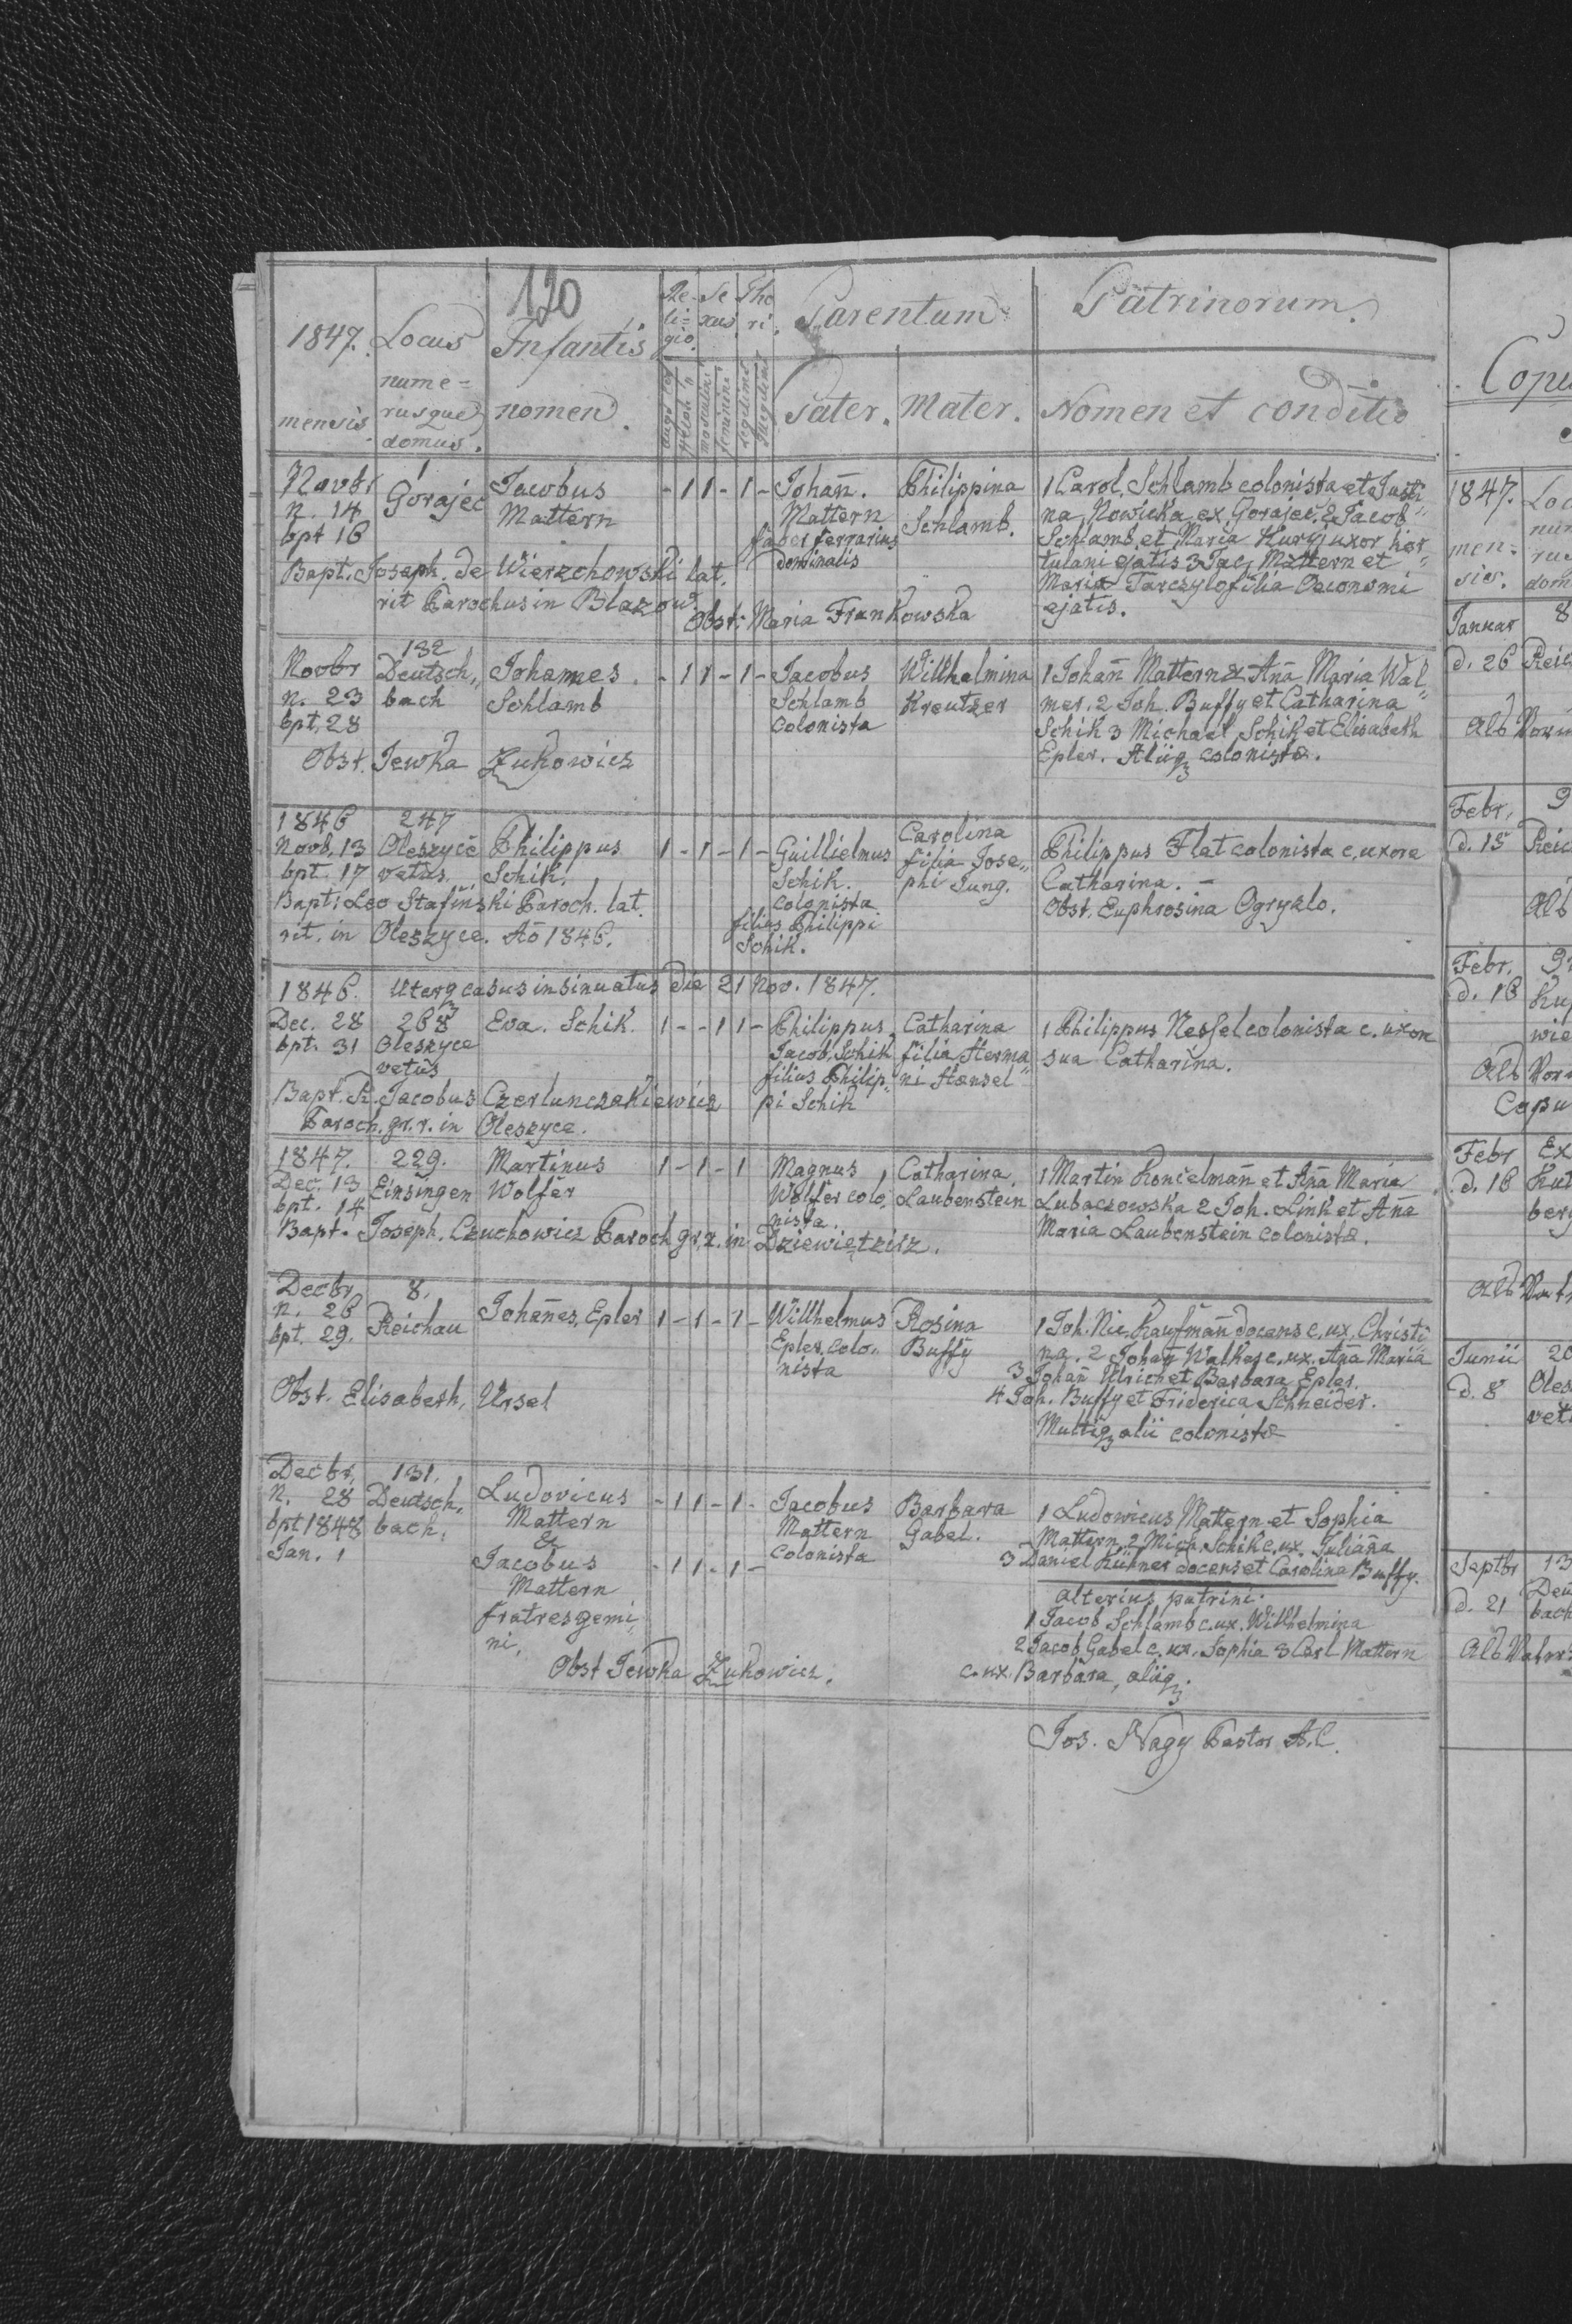 120
1847. mensis
Locus nume= rusque domus.
Infantis nomen.
Re- li= gio.
Se xus
Tho ri.
Parentum
Patrinorum.
masculini
feminini
Legitimi
Illegitimi
Pater. Mater. Nomen et conditio
Novbr n. 14 bpt 16
1 Gorajec
Jacobus Mattern
- 1 1 - 1 -
Johañ. Mattern faber ferrarius dominalis
Philippina Schlamb.
1 Carol. Schlamb colonista et Justi"
na Nowicka ex Gorajec. 2 Jacob
Schlamb et Maria Kuryj uxor hor"
tulani ejatis 3 Jac. Mattern et
Maria Tarczylo filia Oeconomi
ejatis.
Bapt. Joseph. de Wierzchowski lat.
rit Parochus in Blazow.
Obst: Maria Frankowska
Novbr n. 23 bpt. 28
132 Deutsch" bach
Johannes Schlamb
- 1 1 - 1 -
Jacobus Schlamb Colonista
Willhelmina Kreutzer
1 Johañ Mattern & Aña Maria Wal"
mer. 2 Joh. Buffy et Catharina
Schik 3 Michael Schik et Elisabeth
Epler. Aliiq3 colonistæ.
Obst. Jewka Zukowicz
1846 Novb. 13 bpt. 17
247 Oleszyce vetus.
Philippus Schik.
1 - 1 - 1 -
Guillielmus Schik. Colonista filius Philippi Schik.
Carolina filia Jose" phi Jung.
Philippus Flat colonista c. uxore
Catharina. -
Obst. Euphrosina Ogryzlo.
Bapt: Leo Stafinski Paroch. lat.
rit. in Oleszyce. Ao 1846.
1846. Uterq3 casus insinuatus die 21 Nov. 1847.
Dec. 28 bpt. 31
268 Oleszyce vetus
Eva. Schik.
1 - - 1 1 -
Philippus Jacob. Schik filius Philip" pi Schik
Catharina filia Herma" ni Hænsel
1 Philippus Nessel colonista c. uxore
sua Catharina.
Bapt. R. Jacobus Czerlunczakiewicz
Paroch. gr. r. in Oleszyce.
1847. Dec. 13 bpt. 14
229. Einsingen
Martinus Wolfer
1 - 1 - 1
Magnus Wolfer colo, nista.
Catharina Laubenstein
1 Martin Koncelmañ et Aña Maria
Lubaczowska 2 Joh. Link et Aña
Maria Laubenstein colonistæ.
Bapt. Joseph. Czuchowicz Paroch gr. r. in Dziewietzirz.
Decbr n. 26 bpt. 29.
8. Reichau
Joháñes, Epler
1 - 1 - 1 -
Willhelmus Epler, colo" nista
Rosina Buffy
1 Joh. Nic. Kaufmañ docens c. ux. Christi
na. 2 Johañ Walker c. ux. Aña Maria
3 Johañ Ulrich et Barbara Epler.
4 Joh. Buffy et Friderica Schneider.
Multiq3 alii colonistæ
Obst. Elisabeth, Ursel
Decbr, n. 28 bpt 1848 Jan. 1
131. Deutsch, bach.
Ludovicus Mattern
&
Jacobus Mattern fratres gemi, ni.
- 1 1 - 1 -
- 1 1 - 1 -
Jacobus Mattern Colonista
Barbara Gabel.
1 Ludowicus Mattern et Sophia
Mattern 2 Mich. Schik c. ux. Juliaña
3 Daniel Kühner docens et Carolina Buffy.
alterius patrini:
1 Jacob Schlamb c. ux. Wilhelmina
2 Jacob Gabel c. ux. Sophia 3 Carl Mattern
c. ux. Barbara, aliiq3.
Obst Jewka Zukowicz.
Jos. Nagy Pastor A.C.
Copu
1847. men= sis.
Loc num rus dom
Januar d. 26
8 Reic
Febr, d. 15
9 Reic
Febr. d. 16
Febr d. 16
Ex
Junii d. 8
20 Oles vet
Septbr d. 21
13 Deu bach